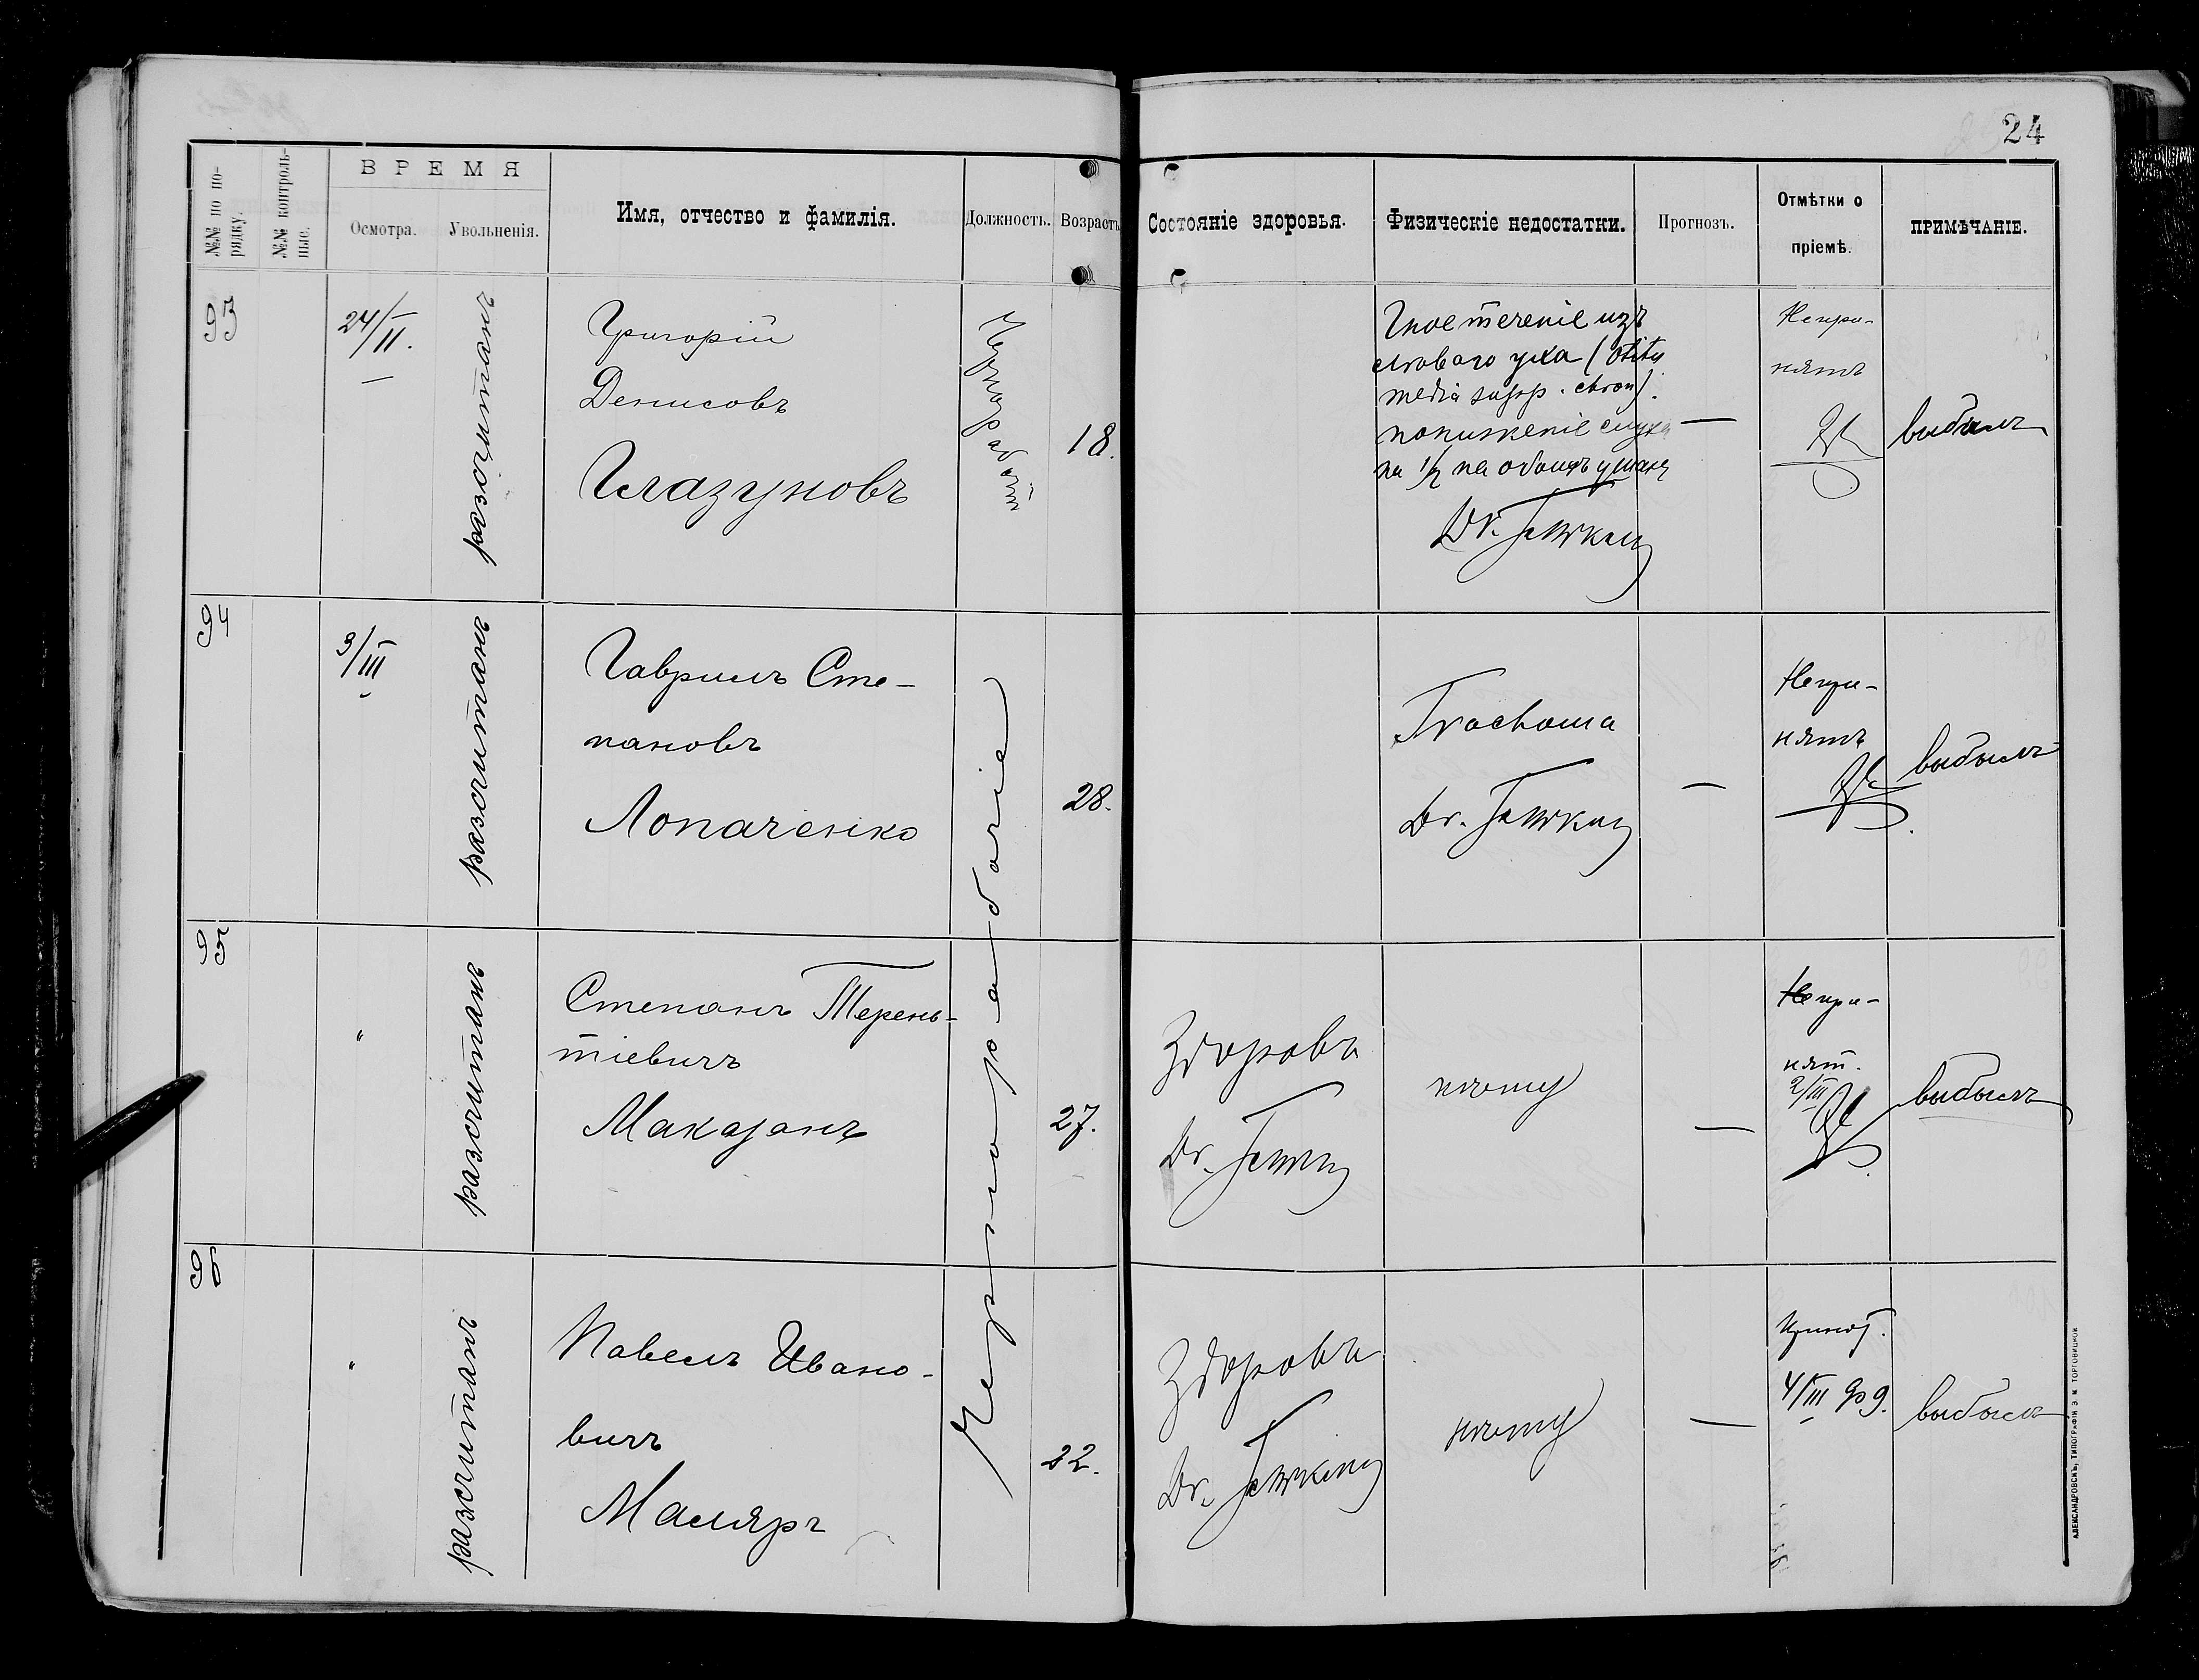 24
№№ по по-
рядку.
№№ контроль-
ные.
ВРЕМЯ
Осмотра.
Увольненія.
Имя, отчество и фамилія.
Должность.
Возрастъ
Состояніе здоровья.
Физическіе недостатки.
Прогнозъ.
Отмѣтки о
пріемѣ.
ПРИМѢЧАНІЕ.
93
24/II.
разсчитанъ
Григорій
Денисовъ
Глазуновъ
Чернорабочій
18.
Гноетеченіе изъ
лѣваго уха (Otitis
media supp. chron).
пониженіе слуха
на 1/2 на обоихъ ушахъ
Dr.
—
Непри-
нятъ
выбылъ
94
3/III
разсчитанъ
Гавриилъ Сте-
пановъ
Лопаченко
Чернорабочіе
28.
Trachoma
Dr.
—
Непри-
нятъ
выбылъ
95
"
разсчитанъ
Степанъ Терень-
тіевичъ
Макаганъ
27.
Здоровъ
Dr.
нѣту
—
Непри-
нят.
2/III
выбылъ
96
"
разсчитанъ
Павелъ Ивано-
вичъ
Маляръ
22.
Здоровъ
Dr.
нѣту
—
Принят.
4/III 909.
выбылъ
АЛЕКСАНДРОВСКЪ, ТИПОГРАФІЯ Э. М. ТОРГОВИЦКОЙ